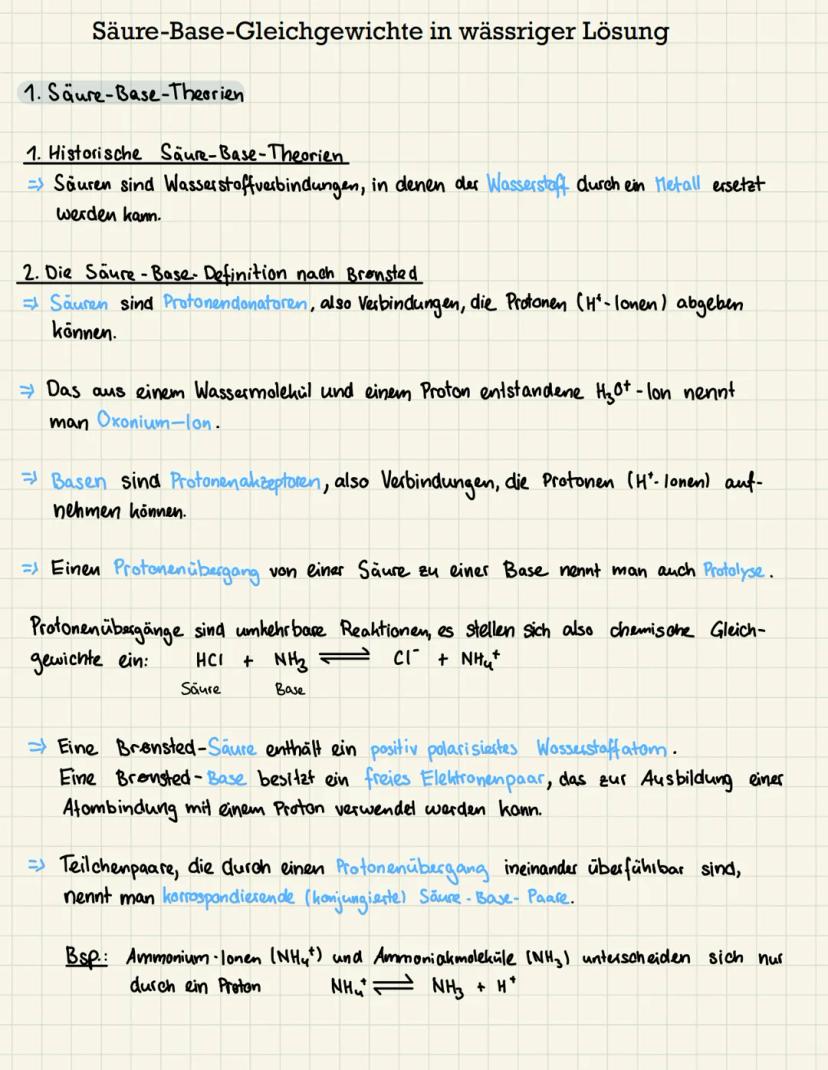 Säure-Base-Gleichgewichte in wässriger Lösung
1. Säure-Base-Theorien
1. Historische Säure-Base-Theorien
⇒ Säuren sind Wasserstoffverbindungen, in denen der Wasserstoff durch ein Metall ersetzt
werden kann.
2. Die Säure-Base-Definition nach Brønsted
⇒ Säuren sind Protonendonatoren, also Verbindungen, die Protonen (H⁺-Ionen) abgeben
können.
⇒ Das aus einem Wassermolekül und einem Proton entstandene H₃O⁺-Ion nennt
man Oxonium-Ion.
⇒ Basen sind Protonenakzeptoren, also Verbindungen, die Protonen (H⁺-Ionen) auf-
nehmen können.
⇒ Einen Protonenübergang von einer Säure zu einer Base nennt man auch Protolyse.
Protonenübergänge sind umkehrbare Reaktionen, es stellen sich also chemische Gleich-
gewichte ein: HCl + NH₃ ⇌ Cl⁻ + NH₄⁺
Säure Base
⇒ Eine Brønsted-Säure enthält ein positiv polarisiertes Wasserstoffatom.
Eine Brønsted-Base besitzt ein freies Elektronenpaar, das zur Ausbildung einer
Atombindung mit einem Proton verwendet werden kann.
⇒ Teilchenpaare, die durch einen Protonenübergang ineinander überführbar sind,
nennt man korrospondierende (konjungierte) Säure-Base-Paare.
Bsp.: Ammonium-Ionen (NH₄⁺) und Ammoniakmoleküle (NH₃) unterscheiden sich nur
durch ein Proton NH₄⁺ ⇌ NH₃ + H⁺